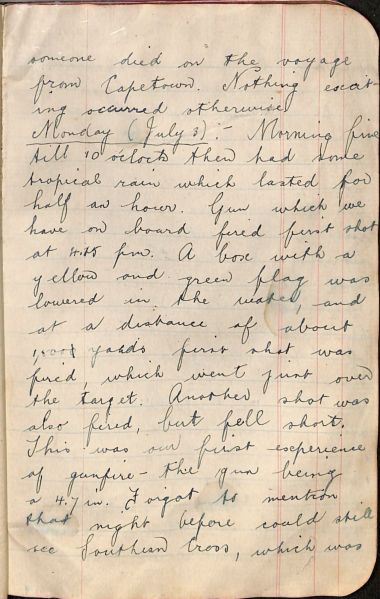 someone died on the voyage
from Capetown. Nothing excit-
ing occurred otherwise
Monday (July 3):- Morning fine
till 10 o'clock then had some
tropical rain which lasted for
half an hour. Gun which we
have on board fired first shot
at 4.45 pm. A box with a
yellow and green flag was
lowered in the water, and
at a distance of about
yards first shot was
fired, which went just over
the target. Another shot was
also fired, but fell short.
This was our first experience
of gunfire - the gun being
a 4.7 in. Forgot to mention
that night before could still
see Southern Cross, which was